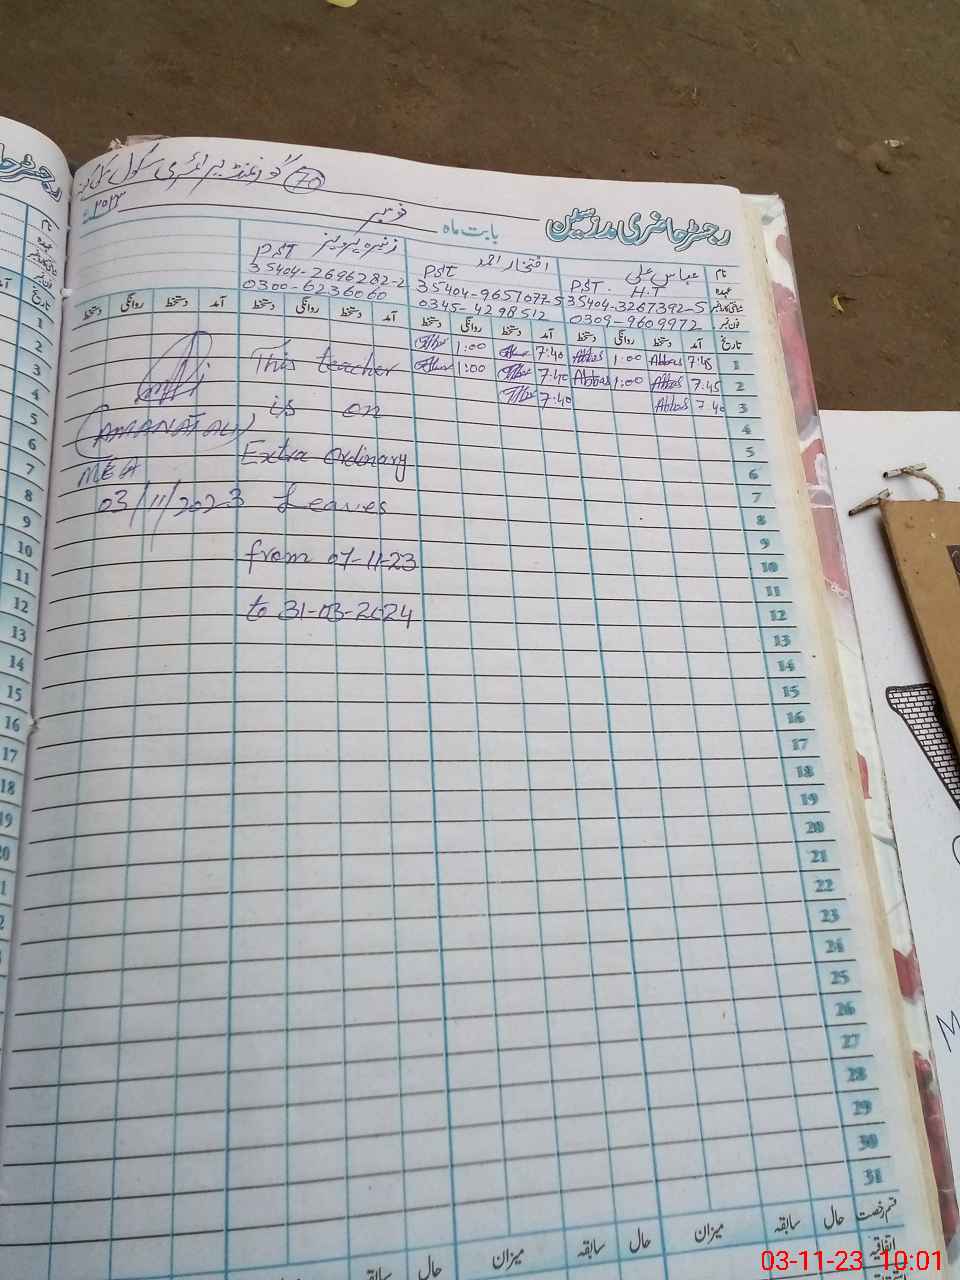 گورنمنٹ پرائمری سکول
70
رجسٹر حاضری مدرسین
بابت ماہ نومبر
۲۰۲۳
نام عباس علی افتخار احمد
عہدہ PST. H.T PST PST
35404-3267392-5 35404-9651077-5 35404-2696282-2
فون نمبر 0309-9609972 0345-4298512 0300-6236060
تاریخ آمد دستخط روانگی دستخط آمد دستخط روانگی دستخط آمد دستخط روانگی دستخط آمد دستخط روانگی دستخط
1 7:45 Abbas 1:00 Abbas 7:40 1:00
2 7:45 Abbas 1:00 Abbas 7:40 1:00
3 7:40 Abbas 7:40
4
5
6
7
8
9
10
11
12
13
14
15
16
17
18
19
20
21
22
23
24
25
26
27
28
29
30
31
This teacher
is on
Extra Ordinary
Leaves
from 07-11-23
to 31-03-2024
(AMANAT ALI)
MEA
03/11/2023
قسم رخصت حال سابقہ میزان حال سابقہ میزان حال سابقہ
اتفاقیہ
نام
عہدہ
تاریخ
1
2
3
4
5
6
7
8
9
10
11
12
13
14
15
16
17
18
19
20
03-11-23 10:01